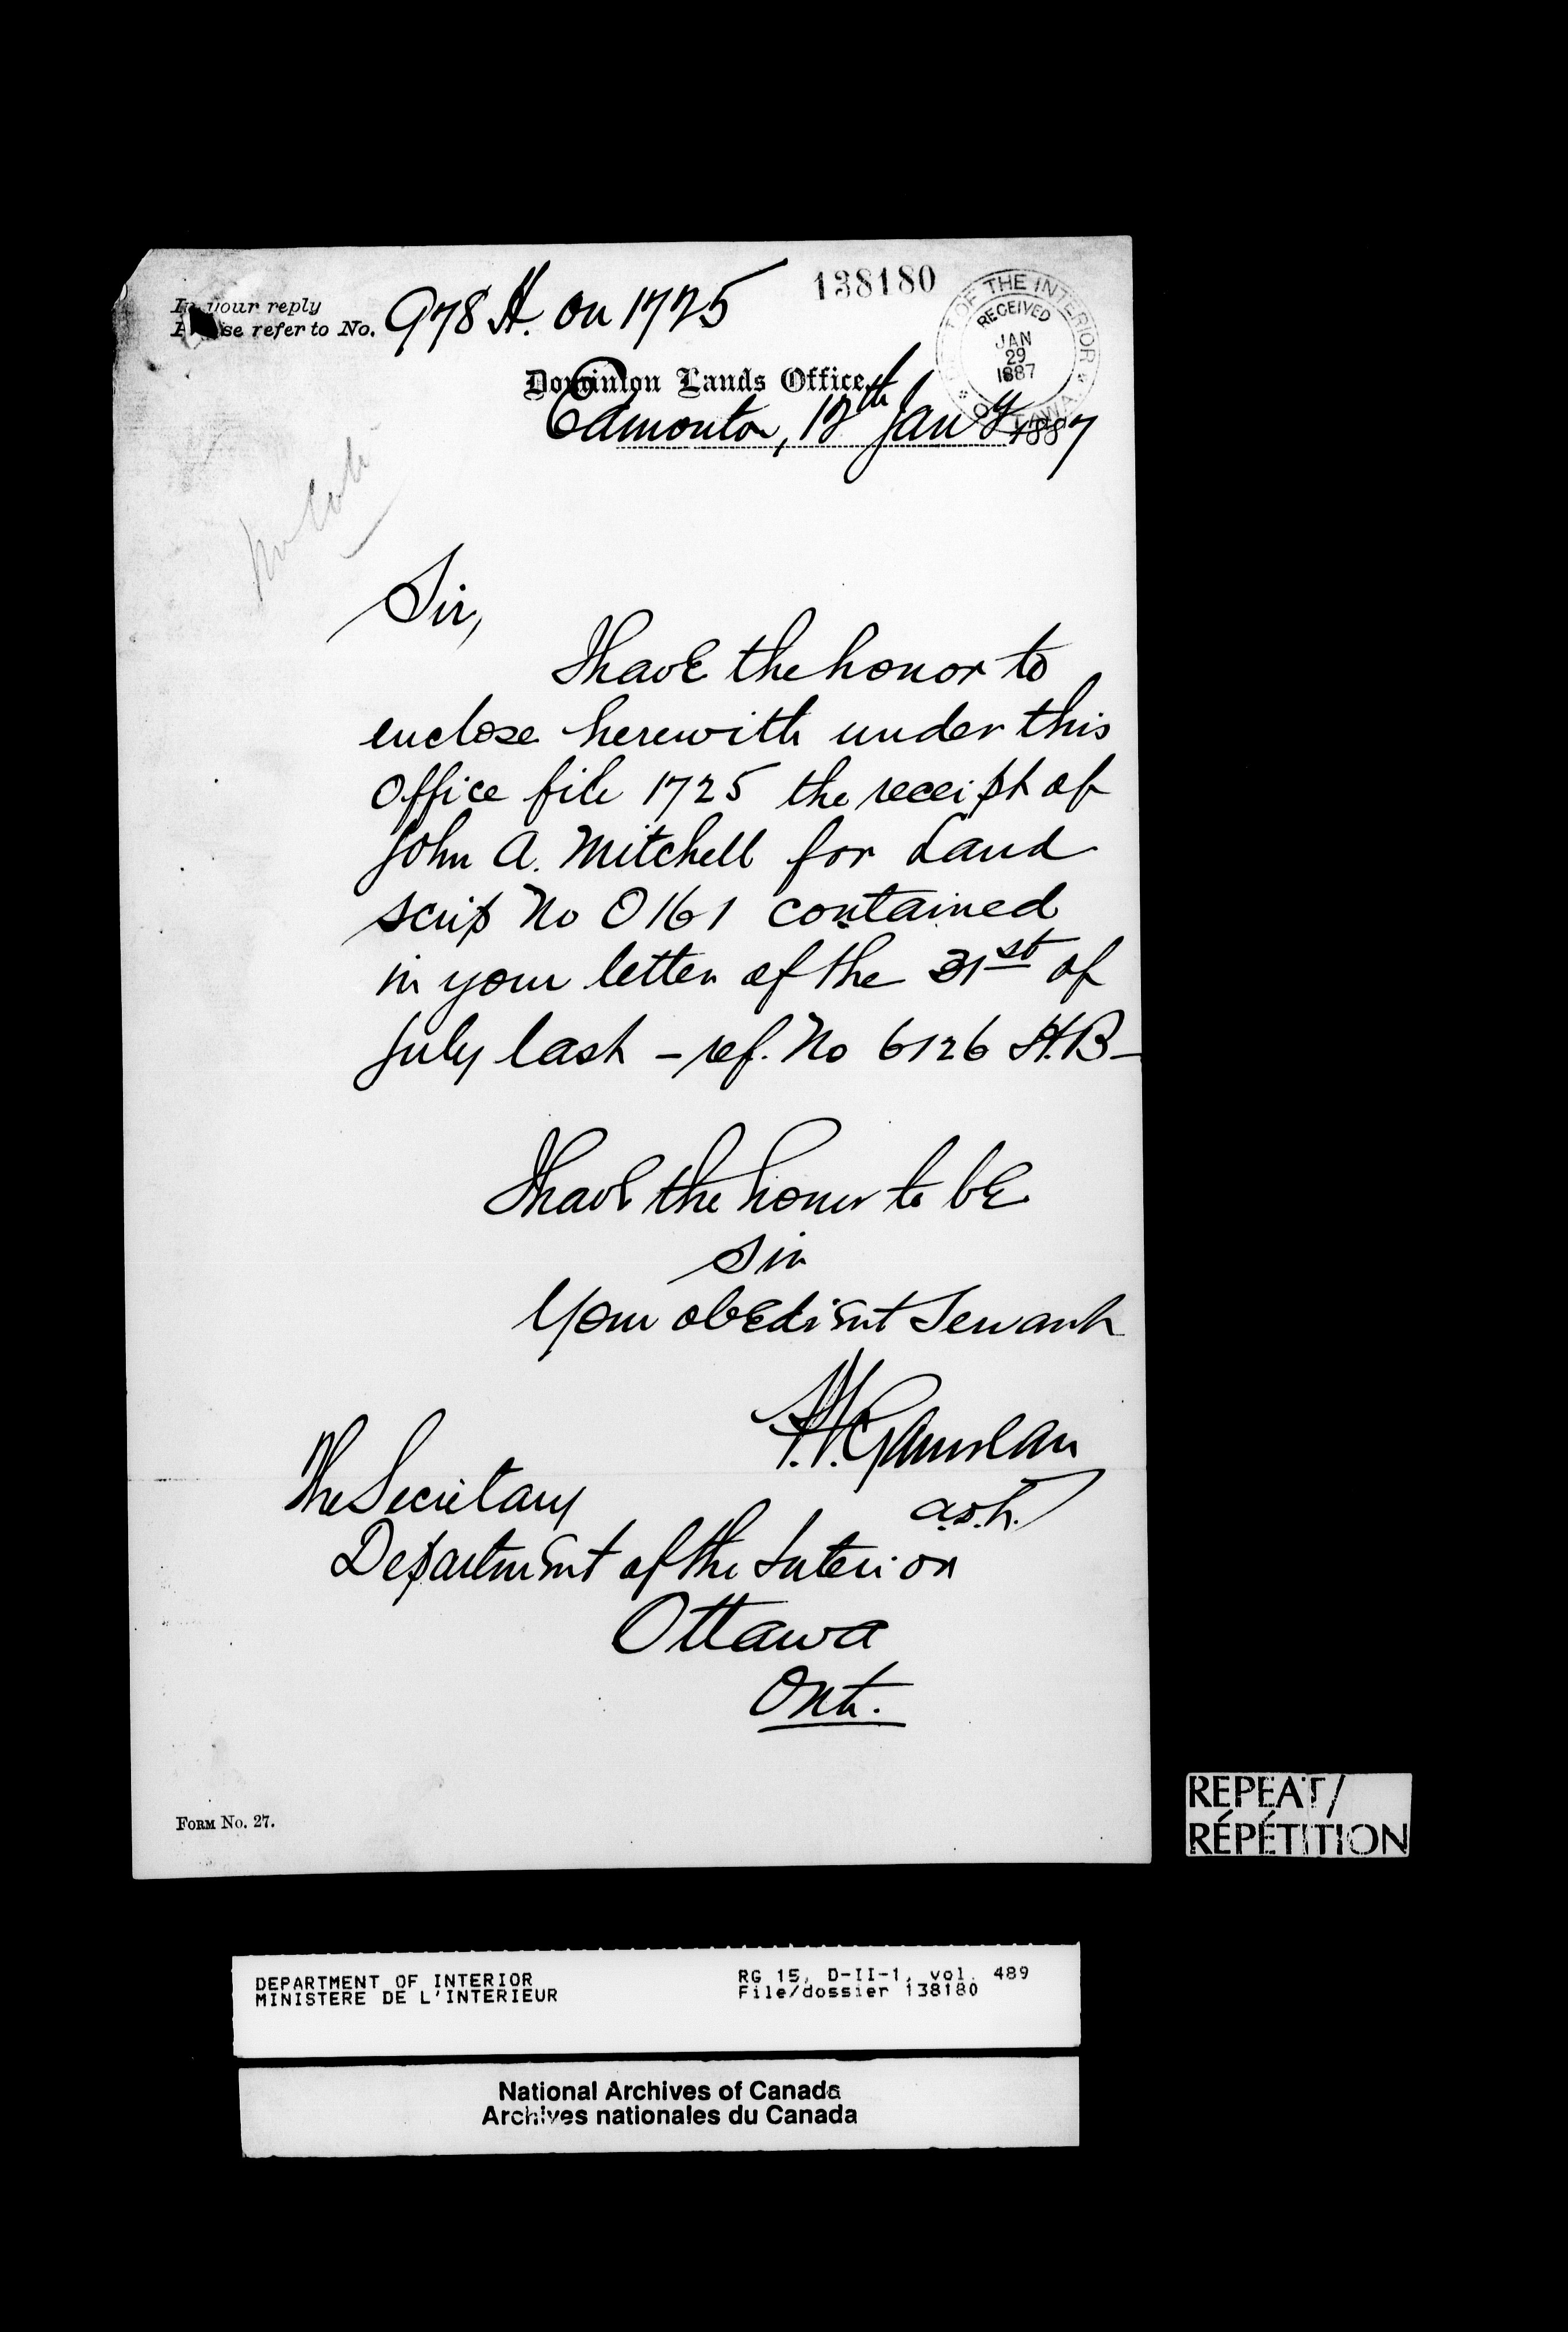 In your reply
Please refer to No. 978 H. on 1725
138180
OF THE INTERIOR
RECEIVED
JAN
29
1887
OTTAWA
Dominion Lands Office,
Edmonton, 12th Jany 1887
Sir,
I have the honor to
enclose herewith under this
Office file 1725 the receipt of
John A. Mitchell for Land
scrip No 0161 contained
in your letter of the 31st of
July last – ref. No 6126 H.B –
I have the honor to be
Sir
Your obedient Servant
The Secretary
Department of the Interior
Ottawa
Ont.
Form No. 27.
REPEAT/
RÉPÉTITION
DEPARTMENT OF INTERIOR RG 15, D-II-1, vol. 489
MINISTERE DE L'INTERIEUR File/dossier 138180
National Archives of Canada
Archives nationales du Canada